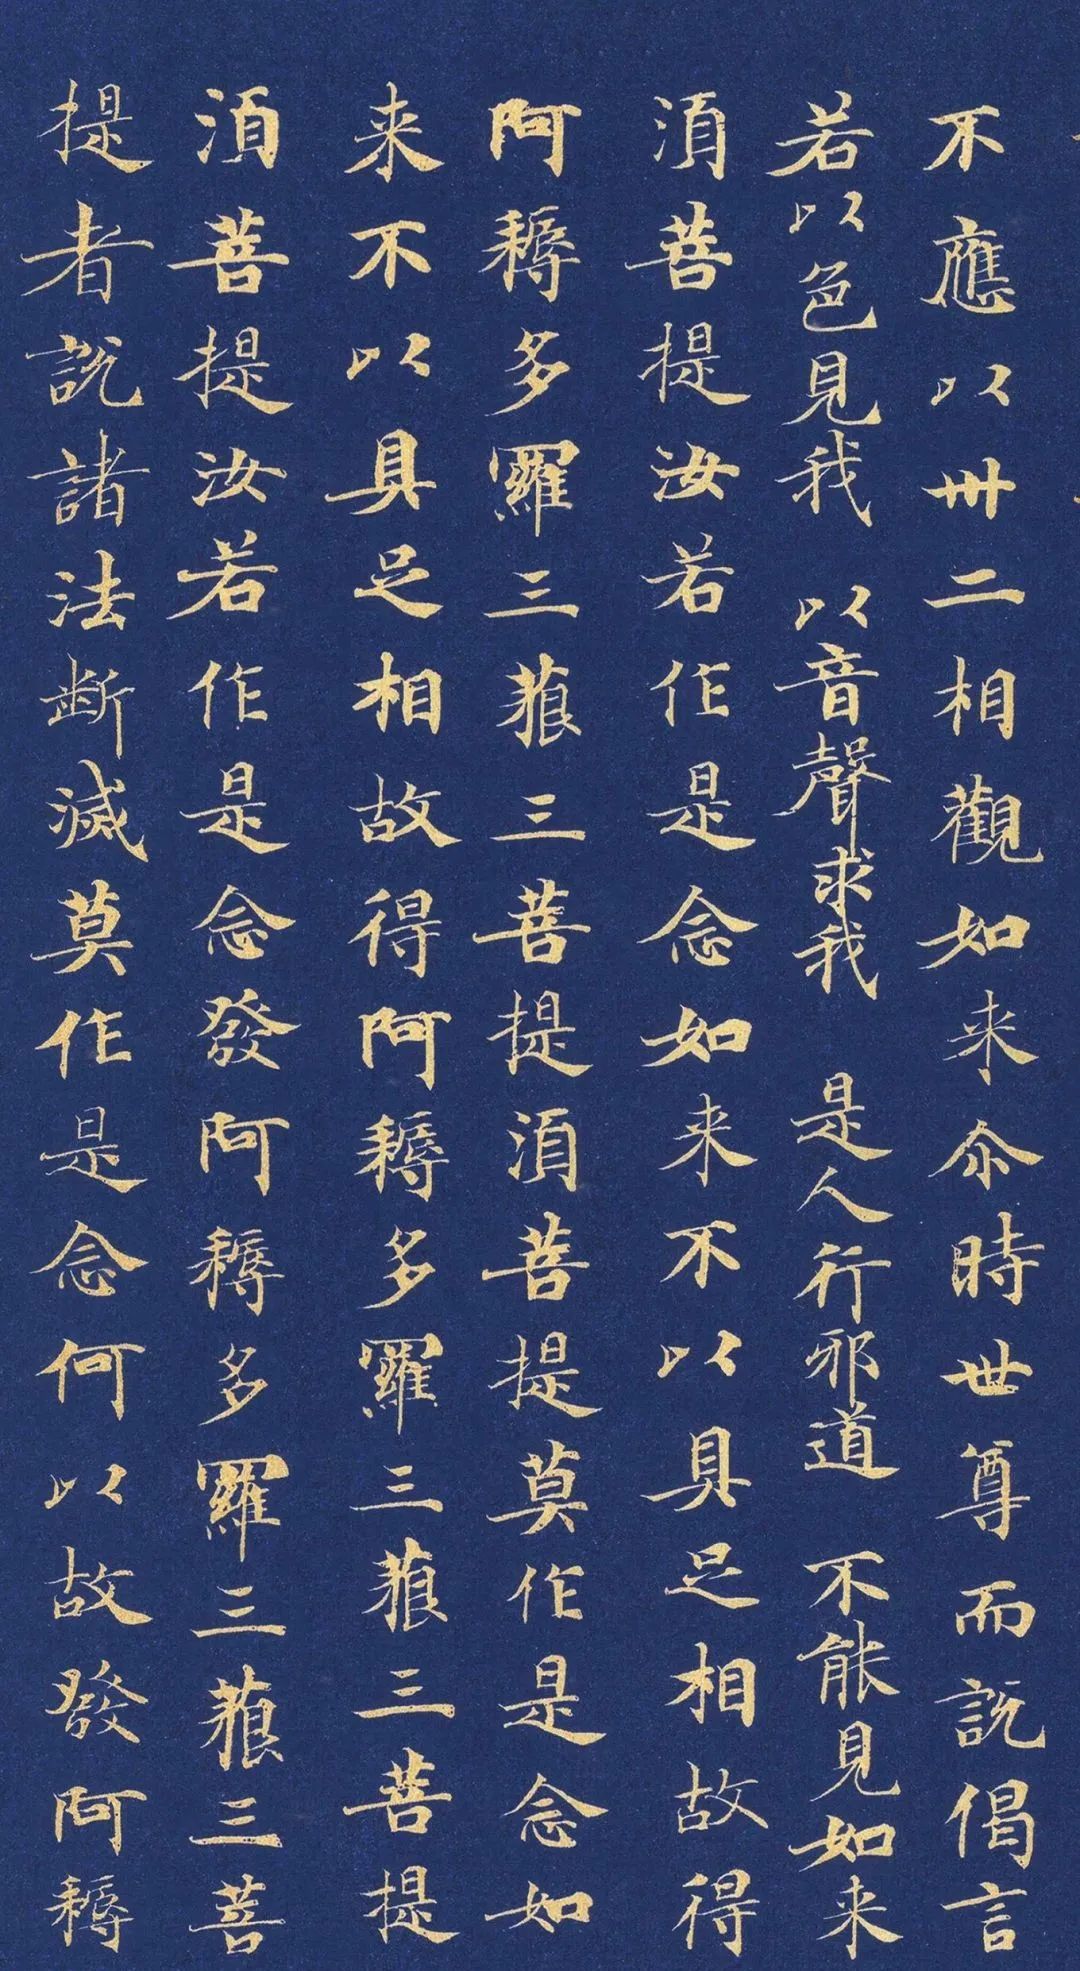 不應以卅二相觀如来尒時世尊而説偈言
若以色見我 以音聲求我 是人行邪道 不能見如来
湏菩提汝若作是念如来不以具足相故得
阿耨多羅三藐三菩提湏菩提莫作是念如
来不以具足相故得阿耨多羅三藐三菩提
湏菩提汝若作是念發阿耨多羅三藐三菩
提者説諸法斷滅莫作是念何以故發阿耨